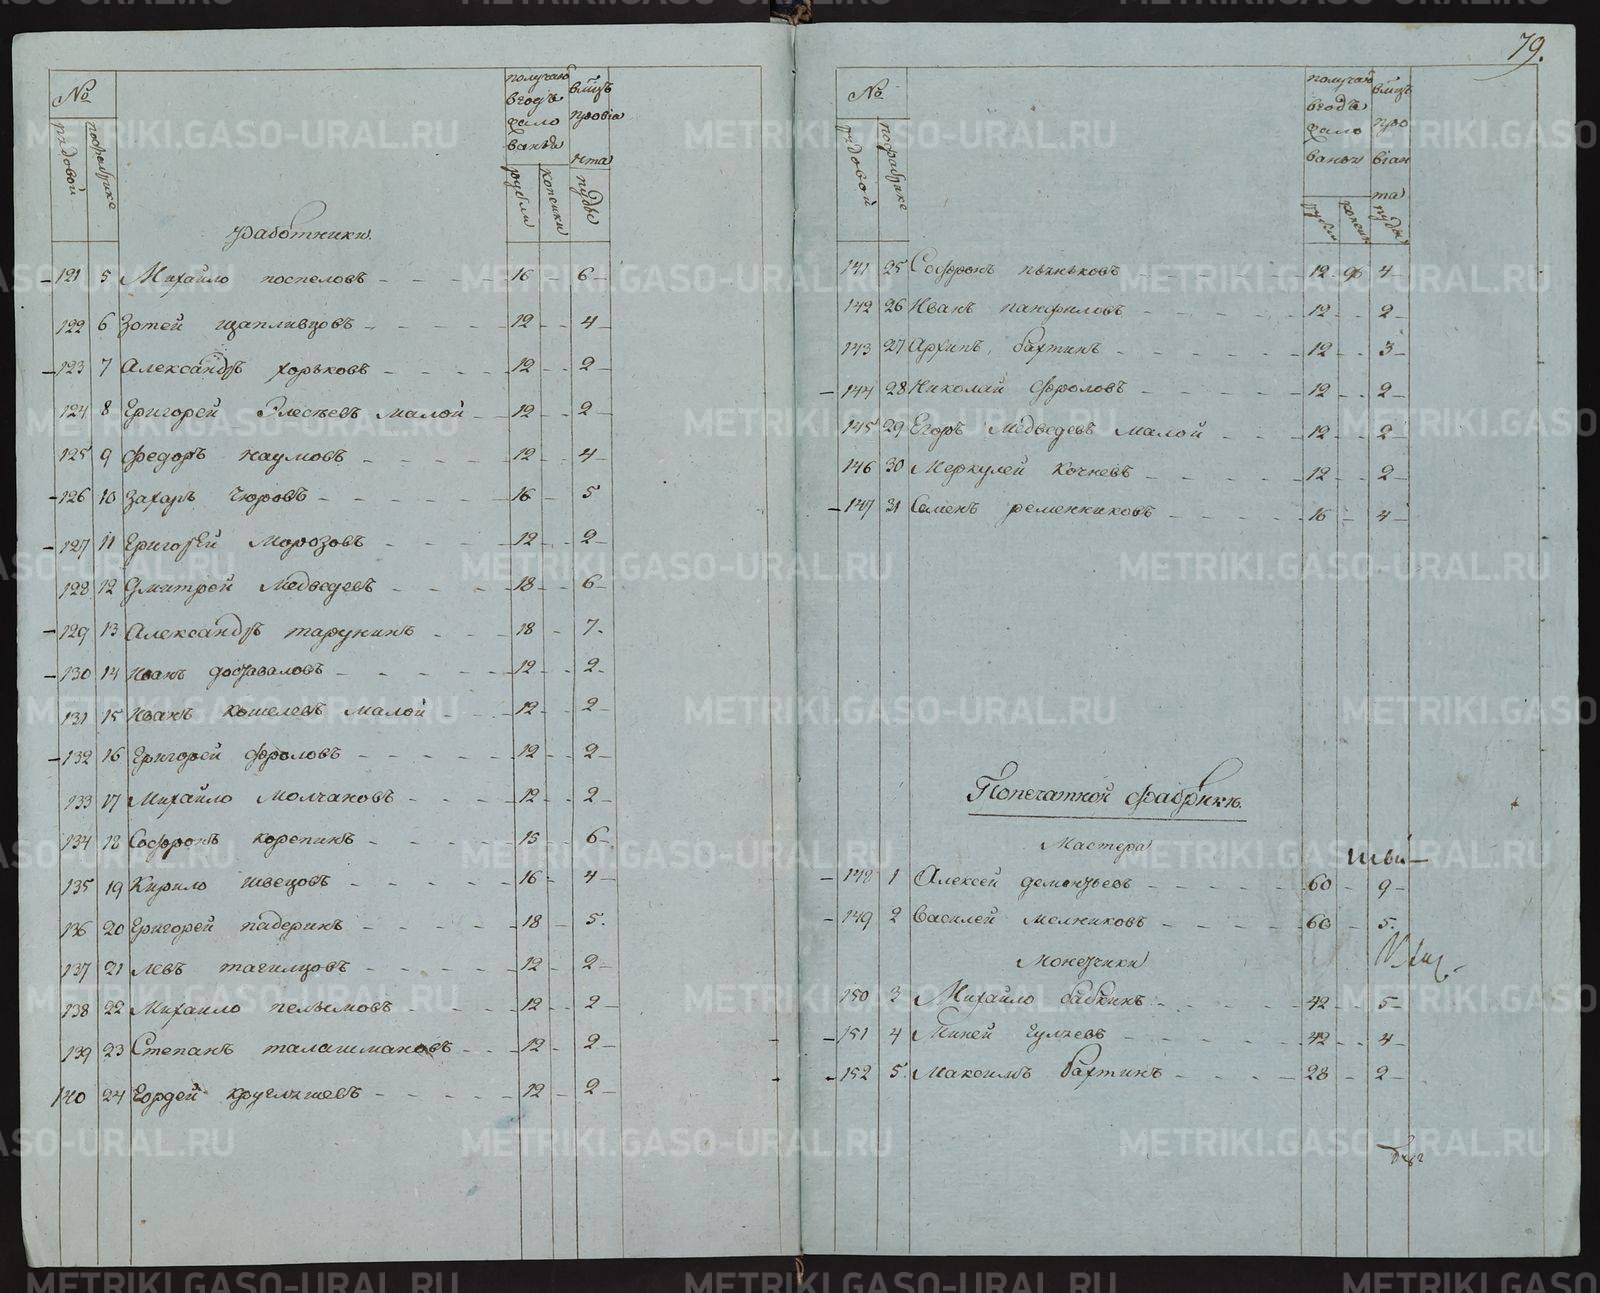 79.
№
рядовой
пофабрике
получаю
вгодъ
жало
ванья
рубли
копейки
вмцъ
провiа
нта
пуды
Работники
121 5 Михайло поспеловъ 16 6
122 6 Зотей щапливцовъ 12 4
123 7 Александръ хорьковъ 12 2
124 8 Григорей Елесеевъ малой 12 2
125 9 Федоръ наумовъ 12 4
126 10 Захаръ Чюровъ 16 5
127 11 Григорей Морозовъ 12 2
128 12 Дмитрей Медведевъ 18 6
129 13 Александръ тарунинъ 18 7
130 14 Иванъ 12 2
131 15 Иванъ Кошелевъ малой 12 2
132 16 Григорей фроловъ 12 2
133 17 Михайло Молчановъ 12 2
134 18 Софронъ корепинъ 15 6
135 19 Кирило швецовъ 16 4
136 20 Григорей падеринъ 18 5
137 21 левъ тагилцовъ 12 2
138 22 Михаило пелымовъ 12 2
139 23 Степанъ талашмановъ 12 2
140 24 Гордей круглышевъ 12 2
№
рядовой
пофабрике
получаю
вгодъ
жало
ванья
рубли
копеик
вмцъ
про
вiан
та
пуды
141 25 Софронъ пьянковъ 12 96 4
142 26 Иванъ панфиловъ 12 2
143 27 Архипъ бахтинъ 12 3
144 28 Николай фроловъ 12 2
145 29 Егоръ Медведевъ малой 12 2
146 30 Меркулей Кочневъ 12 2
147 31 Семенъ ременниковъ 16 4
Попечатной фабрики
Мастера
148 1 Алексей дементьевъ 60 9
149 2 Василей мелниковъ 60 5
Монетчики
150 3 Михайло бабкинъ 42 5
151 4 Миней гулаевъ 42 4
152 5 Максимъ бахтинъ 28 2
METRIKI.GASO-URAL.RU